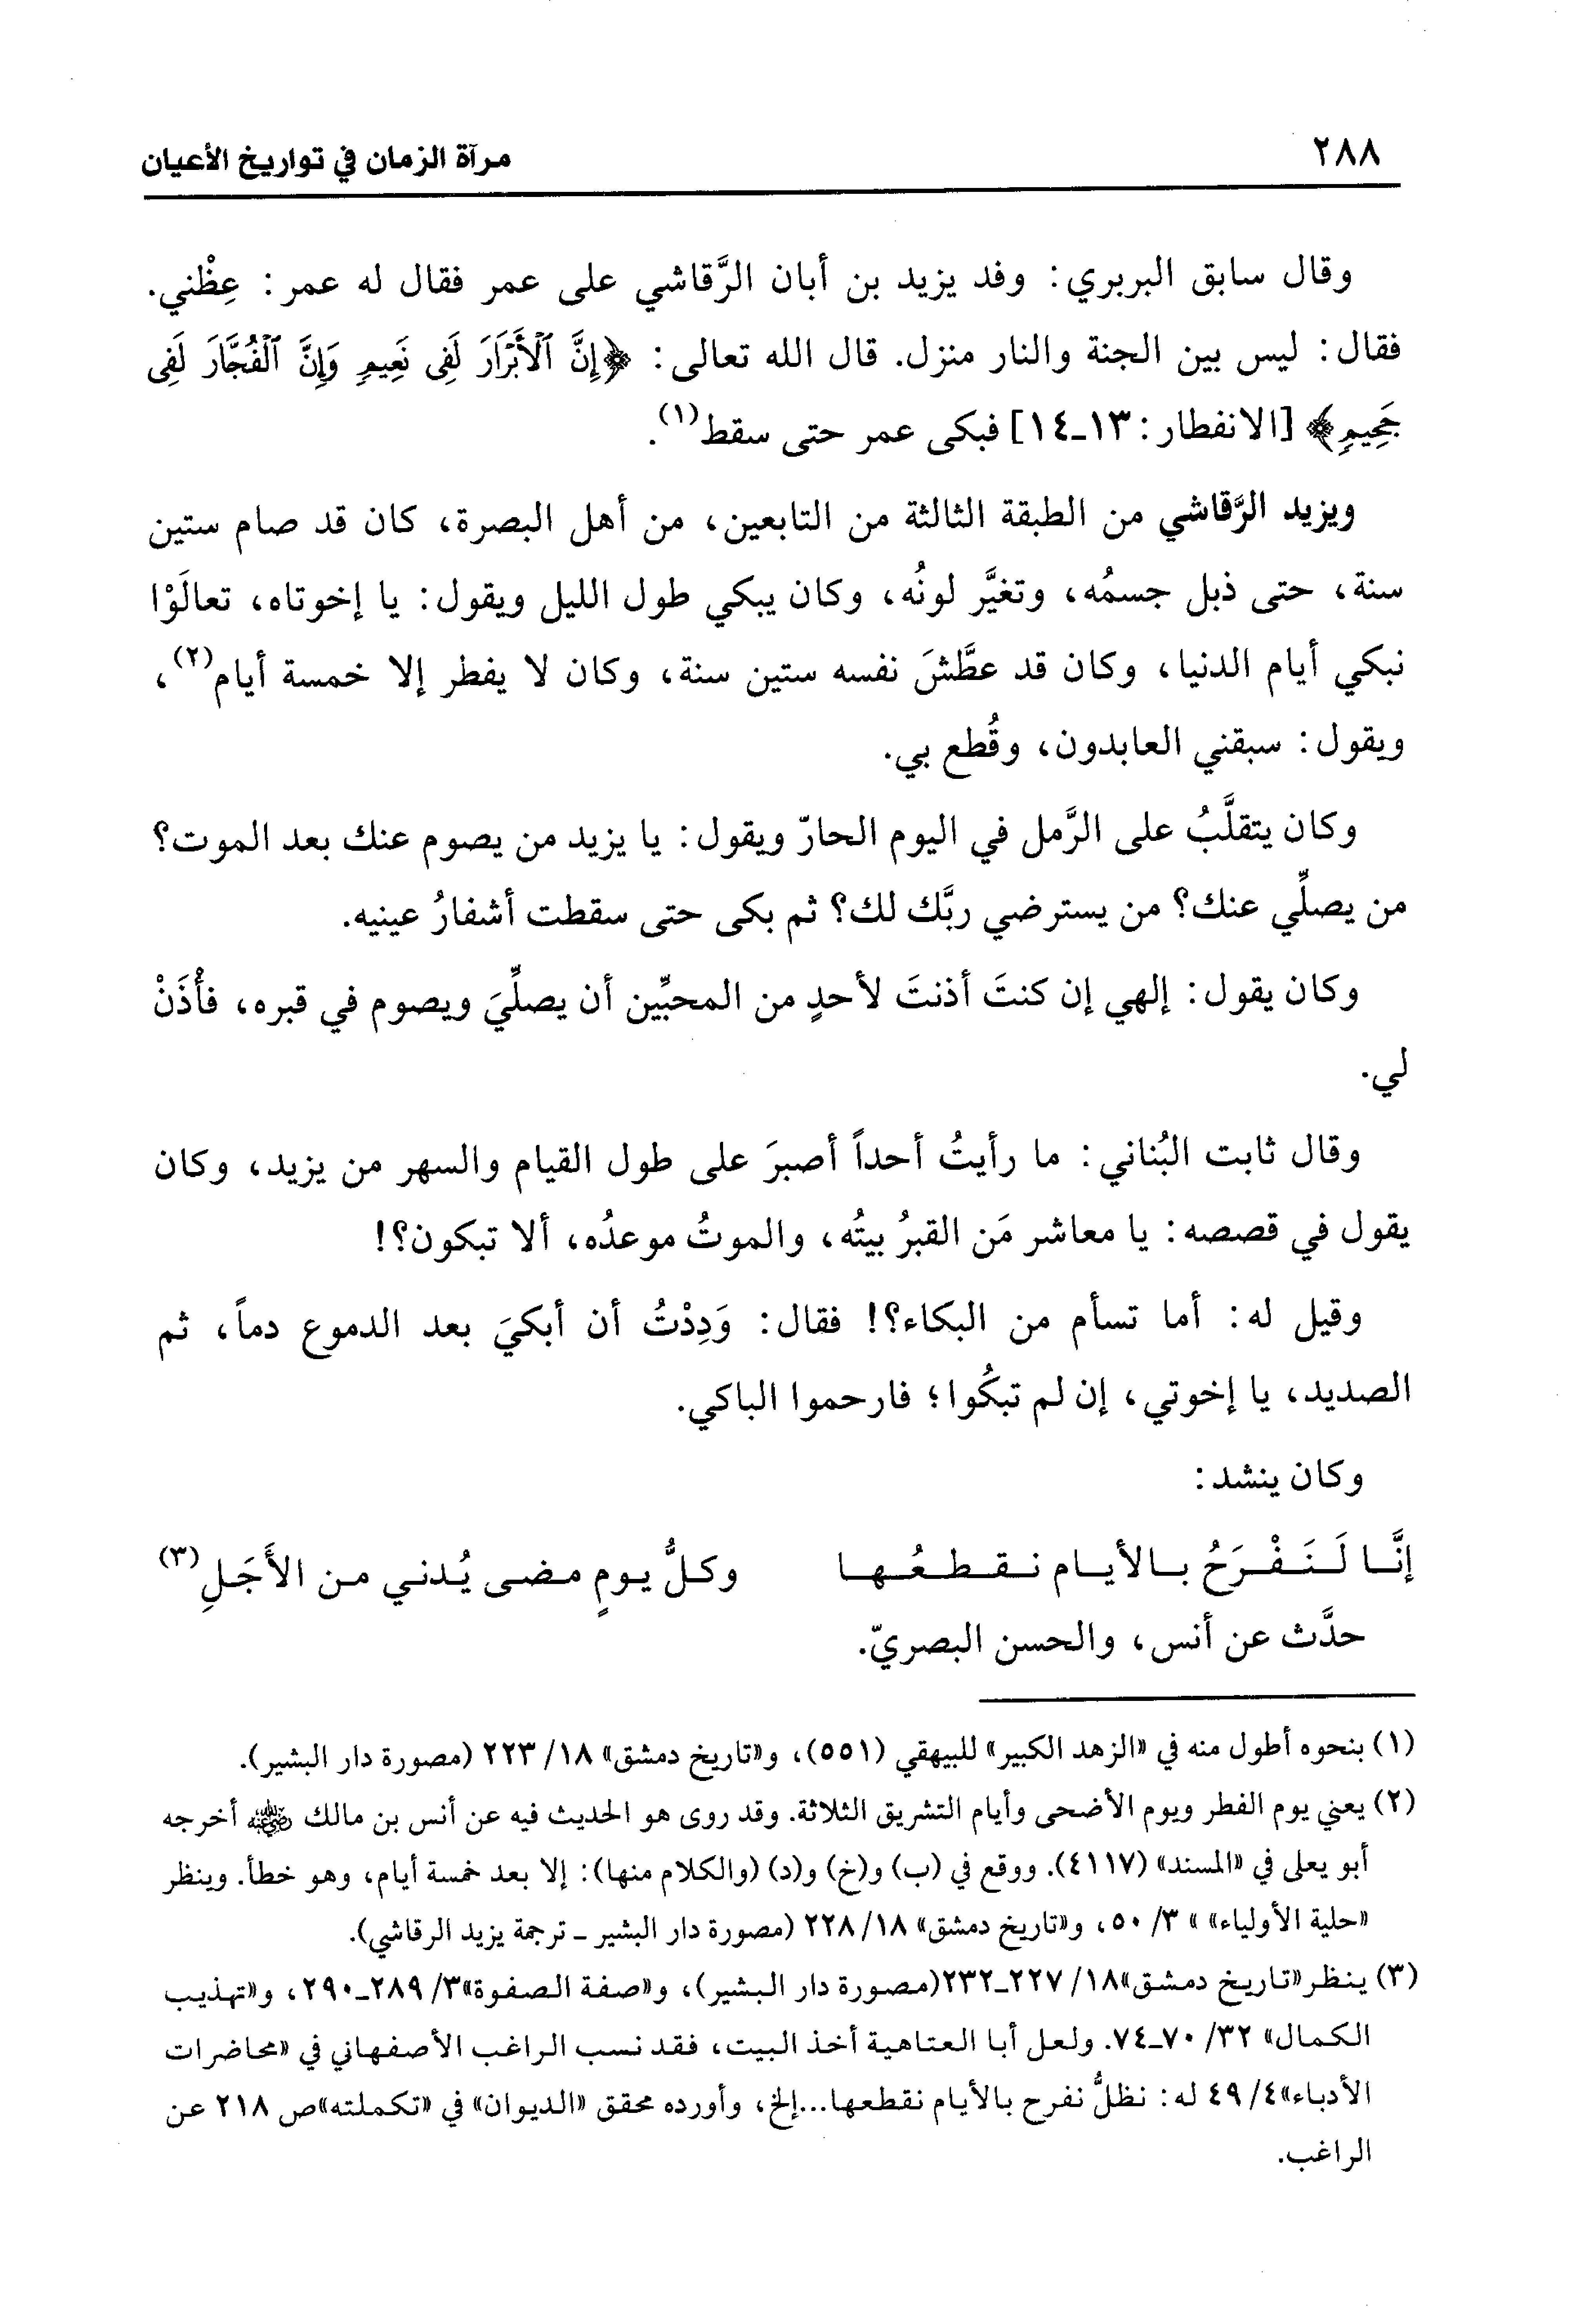 ٢٨٨
مرآة الزمان في تواريخ الأعيان
وقال سابق البربري: وفد يزيد بن أبان الرَّقاشي على عمر فقال له عمر: عِظْني.
فقال: ليس بين الجنة والنار منزل. قال الله تعالى: ﴿إِنَّ ٱلْأَبْرَارَ لَفِى نَعِيمٍ وَإِنَّ ٱلْفُجَّارَ لَفِى
جَحِيمٍ﴾ [الانفطار: ١٣ـ١٤] فبكى عمر حتى سقط(١).
ويزيد الرَّقاشي من الطبقة الثالثة من التابعين، من أهل البصرة، كان قد صام ستين
سنة، حتى ذبل جسمُه، وتغيَّر لونُه، وكان يبكي طول الليل ويقول: يا إخوتاه، تعالَوْا
نبكي أيام الدنيا، وكان قد عطَّشَ نفسه ستين سنة، وكان لا يفطر إلا خمسة أيام(٢)،
ويقول: سبقني العابدون، وقُطع بي.
وكان يتقلَّبُ على الرَّمل في اليوم الحارّ ويقول: يا يزيد من يصوم عنك بعد الموت؟
من يصلِّي عنك؟ من يسترضي ربَّك لك؟ ثم بكى حتى سقطت أشفارُ عينيه.
وكان يقول: إلهي إن كنتَ أذنتَ لأحدٍ من المحبِّين أن يصلِّيَ ويصوم في قبره، فأْذَنْ
لي.
وقال ثابت البُناني: ما رأيتُ أحداً أصبرَ على طول القيام والسهر من يزيد، وكان
يقول في قصصه: يا معاشر مَن القبرُ بيتُه، والموتُ موعدُه، ألا تبكون؟!
وقيل له: أما تسأم من البكاء؟! فقال: وَدِدْتُ أن أبكيَ بعد الدموع دماً، ثم
الصديد، يا إخوتي، إن لم تبكُوا؛ فارحموا الباكي.
وكان ينشد:
إنَّا لَنَفْرَحُ بالأيام نقطعُها وكلُّ يومٍ مضى يُدني من الأَجَلِ(٣)
حدَّث عن أنس، والحسن البصريّ.
(١) بنحوه أطول منه في «الزهد الكبير» للبيهقي (٥٥١)، و«تاريخ دمشق» ١٨/ ٢٢٣ (مصورة دار البشير).
(٢) يعني يوم الفطر ويوم الأضحى وأيام التشريق الثلاثة. وقد روى هو الحديث فيه عن أنس بن مالك رضي الله عنه أخرجه
أبو يعلى في «المسند» (٤١١٧). ووقع في (ب) و(خ) و(د) (والكلام منها): إلا بعد خمسة أيام، وهو خطأ. وينظر
«حلية الأولياء» » ٣/ ٥٠، و«تاريخ دمشق» ١٨/ ٢٢٨ (مصورة دار البشير ـ ترجمة يزيد الرقاشي).
(٣) ينظر«تاريخ دمشق»١٨/ ٢٢٧ـ٢٣٢(مصورة دار البشير)، و«صفة الصفوة»٣/ ٢٨٩ـ٢٩٠، و«تهذيب
الكمال» ٣٢/ ٧٠ـ٧٤. ولعل أبا العتاهية أخذ البيت، فقد نسب الراغب الأصفهاني في «محاضرات
الأدباء»٤/ ٤٩ له: نظلُّ نفرح بالأيام نقطعها...إلخ، وأورده محقق «الديوان» في «تكملته»ص ٢١٨ عن
الراغب.